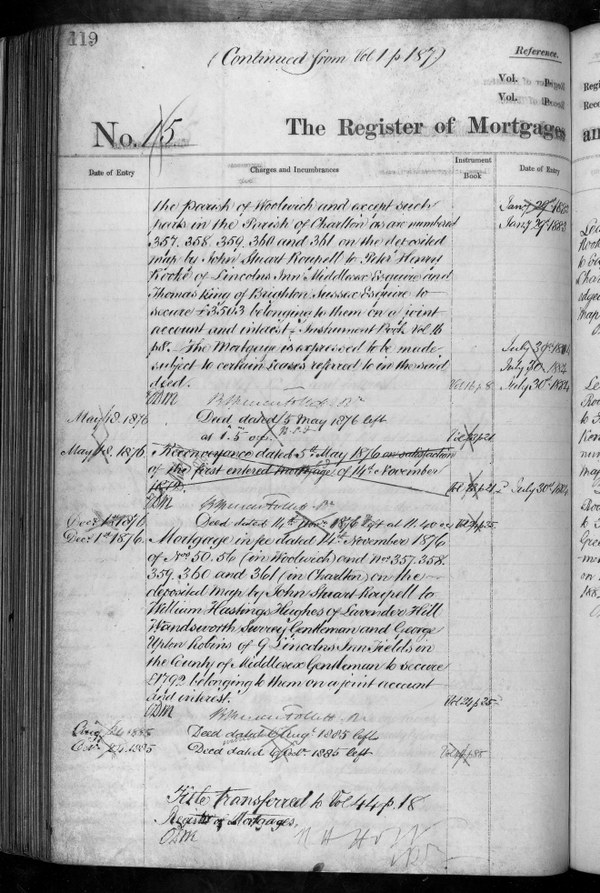 119
(Continued from Vol 1 p 187)
Reference.
Vol.
Vol.
No. 15 The Register of Mortgages
Date of Entry Charges and Incumbrances Instrument Book Date of Entry
the parish of Woolwich and except such
tracks in the Parish of Charlton as are numbered
357. 358. 359. 360 and 361 on the deposited
map by John Stuart Roupell to Peter Henry
Rooke of Lincolns Inn Middlesex Esquire and
Thomas King of Brighton Sussex Esquire to
secure £3503 belonging to them on a joint
account and interest - Instrument Book Vol. 16
p8. The Mortgage is expressed to be made
subject to certain leases referred to in the said
deed. Vol. 16 p 8
Jany 29th 1883
July 30th 1884
July 30th 1884
May 18. 1876 Deed dated 5 May 1876 left
at 1.5 o/c.
May 18. 1876 Reconveyance dated 5th May 1876 on satisfaction
of the first entered mortgage of 14th November
July 30th 1884
Decr 1st 1876 Deed dated 14th Novr 1876 left at 11.40
Decr 1st 1876. Mortgage in fee dated 14th November 1876
of Nos 50. 56 (in Woolwich) and nos 357. 358.
359. 360 and 361 (in Charlton) on the
deposited map by John Stuart Roupell to
William Hastings Hughes of Lavender Hill
Wandsworth Surrey Gentleman and George
Upton Robins of 9 Lincolns Inn Fields in
the County of Middlesex Gentleman to secure
£1792 belonging to them on a joint account
and interest. Vol 24 p 35
1885 Deed dated Augt 1885 left
1885 Deed dated 1885 left
Title transferred to Vol 44 p. 18
Register of Mortgages.